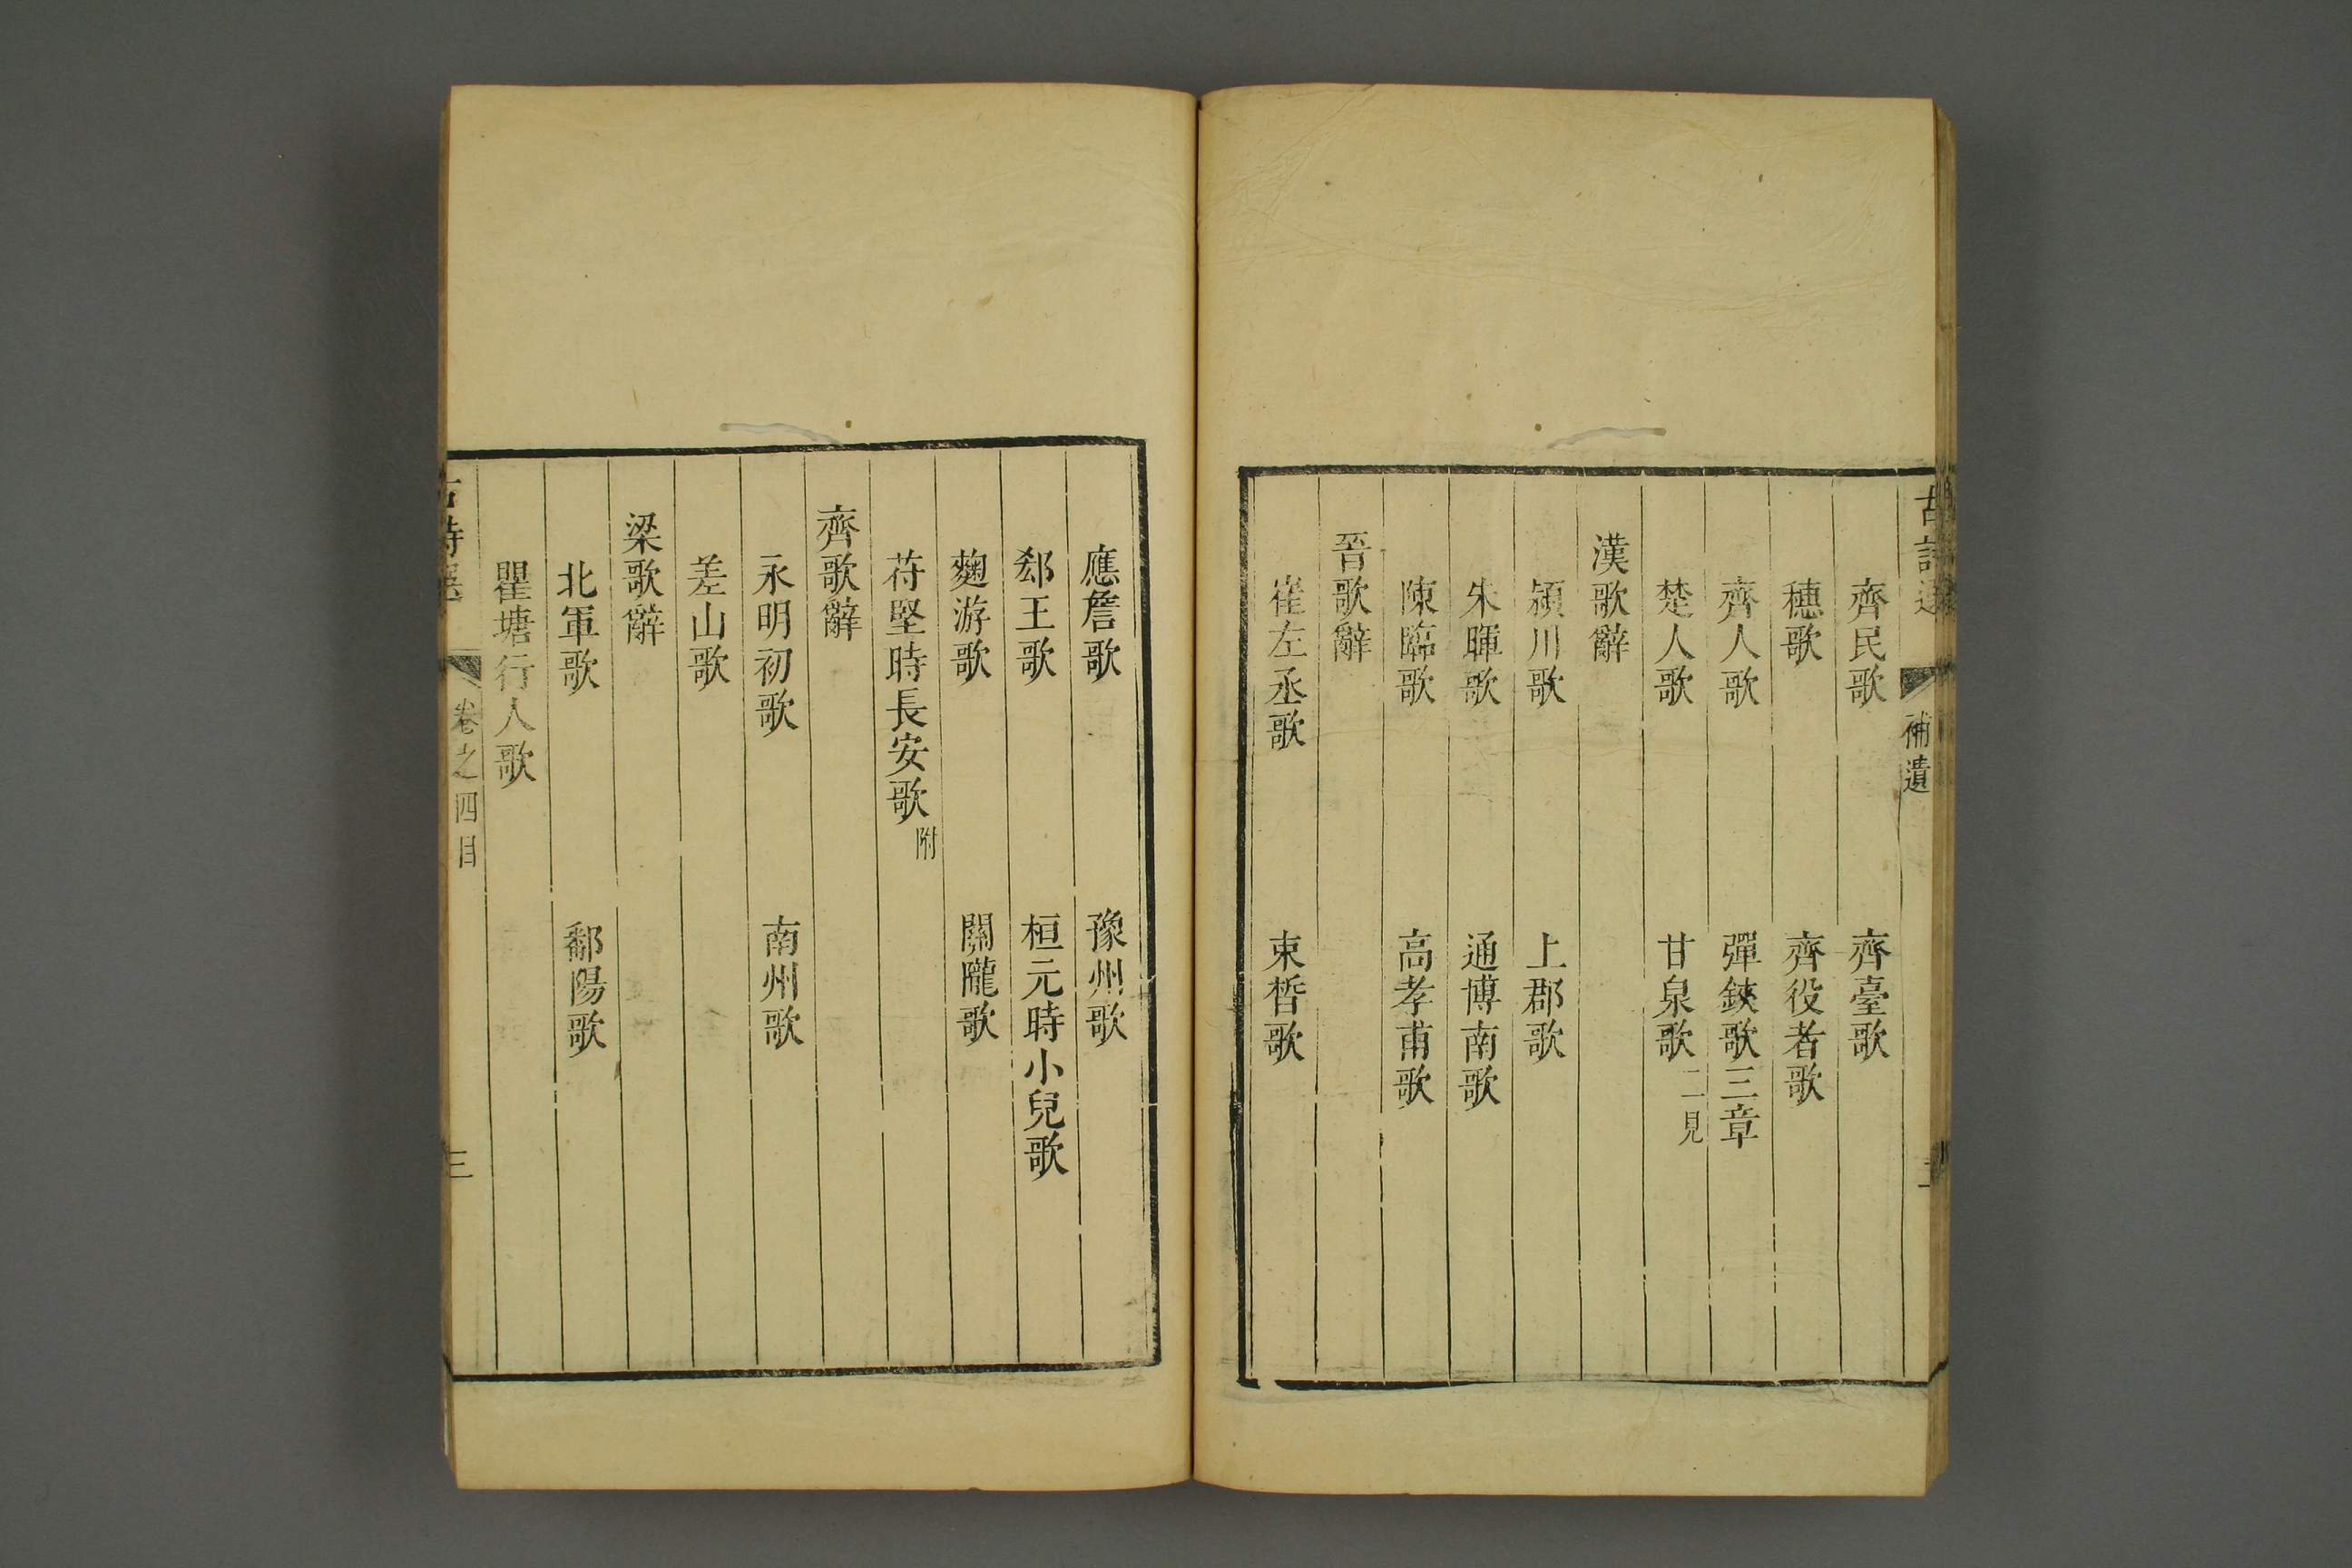 補遺
齊民歌　齊臺歌
穗歌　齊役者歌
齊人歌　彈鋏歌三章
楚人歌　甘泉歌二見
漢歌辭
潁川歌　上郡歌
朱暉歌　通博南歌
陳臨歌　高孝甫歌
晉歌辭
崔左丞歌　束晳歌
應詹歌　豫州歌
郄王歌　桓元時小兒歌
麴游歌　關隴歌
苻堅時長安歌附
齊歌辭
永明初歌　南州歌
差山歌
梁歌辭
北軍歌　鄱陽歌
瞿塘行人歌
卷之四目
三